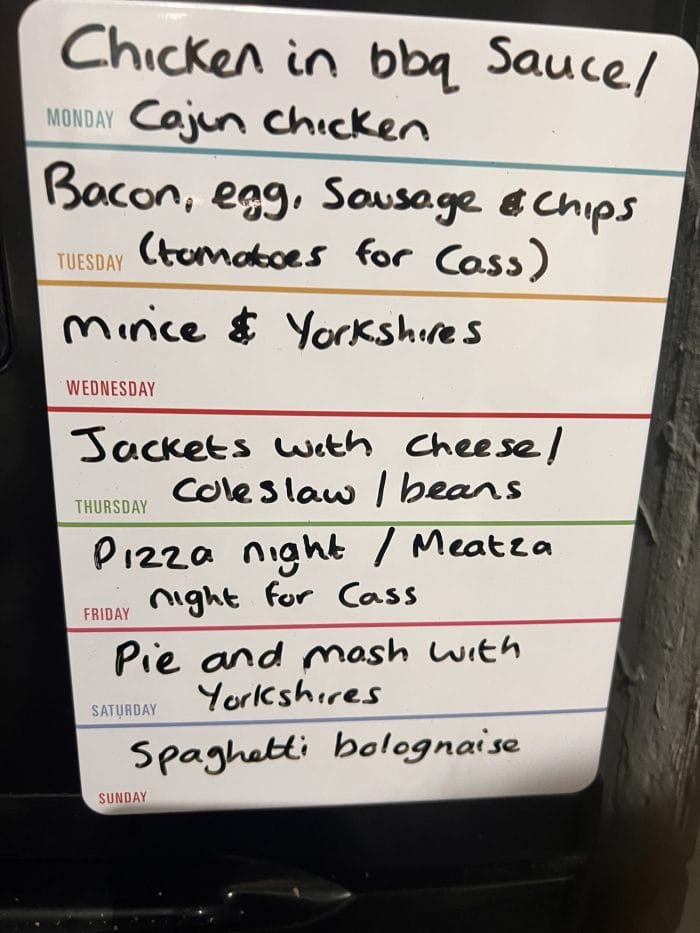 Chicken in bbq Sauce/
MONDAY Cajun chicken
Bacon, egg, Sausage & Chips
TUESDAY (tomatoes for Cass)
Mince & Yorkshires
WEDNESDAY
Jackets with cheese/
THURSDAY Coleslaw / beans
Pizza night / Meatza
FRIDAY night for Cass
Pie and mash with
SATURDAY Yorkshires
Spaghetti bolognaise
SUNDAY